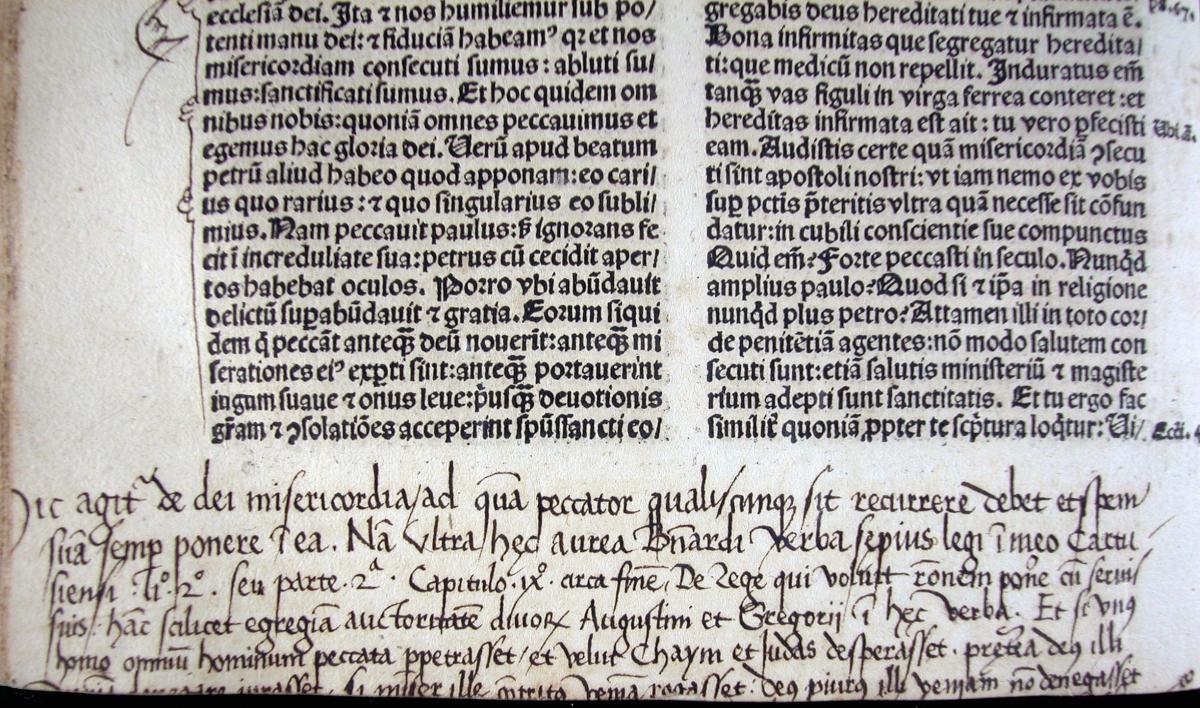 ecclesiā dei. Ita ⁊ nos humiliemur sub po/
tenti manu dei: ⁊ fiduciā habeamꝰ qꝛ et nos
misericordiam consecuti sumus: abluti su/
mus: sanctificati sumus. Et hoc quidem om
nibus nobis: quoniā omnes peccauimus et
egemus hac gloria dei. Uerū apud beatum
petrū aliud habeo quod apponam: eo cari/
us quo rarius: ⁊ quo singularius eo subli/
mius. Nam peccauit paulus: s̄ ignorans fe
cit ī increduliate sua: petrus cū cecidit aper/
tos habebat oculos. Porro vbi abūdauit
delictū suꝑabūdauit ⁊ gratia. Eorum siqui
dem q̄ peccāt anteqꝫ̄ deū nouerīt: anteqꝫ̄ mi
serationes eiꝰ exꝑti sint: anteqꝫ̄ portauerint
iugum suaue ⁊ onus leue: p̄usqꝫ̄ deuotionis
gr̄am ⁊ ꝯsolatiōes acceperint sp̄ūssancti eo/
gregabis deus hereditati tue ⁊ infirmata ē.
Bona infirmitas que segregatur heredita/
ti: que medicū non repellit. Induratus em̄
tanqꝫ̄ vas figuli in virga ferrea conteret: et
hereditas infirmata est ait: tu vero ꝑfecisti
eam. Audistis certe quā misericordiā ꝯsecu
ti sint apostoli nostri: vt iam nemo ex vobis
suꝑ pctīs p̄teritis vltra quā necesse sit cōfun
datur: in cubili conscientie sue compunctus
Quid em̄? Forte peccasti in seculo. Nunqͥd
amplius paulo? Quod si ⁊ ip̄a in religione
nunqͥd plus petro? Attamen illi in toto cor/
de penitētiā agentes: nō modo salutem con
secuti sunt: etiā salutis ministeriū ⁊ magiste
rium adepti sunt sanctitatis. Et tu ergo fac
similir̄ quoniā ꝓpter te sc̄ptura loq̄tur: Ui/
ps. 67.
Ubi ā.
Hic agitᷣ de dei misericordia/ad quā peccator qualiscunqꝫ sit recurrere debet et spem
suā semꝑ ponere ī ea. Nā Ultra hęc aurea Bn̄ardi Verba sepius legi ī meo Cartu
siensi li°. 2°. seu parte .2ᵃ. Capitulo .ix°. circa finē, De Rege qui voluit rōnem pone cū servis
suis: hāc scilicet egregiā auctoritatē divoꝝ Augustini et Gregorij ī hęc verba. Et si vnꝰ
homo omniū hominum peccata ꝑpetrasset/et velut Chaym et Judas desperasset. pretēa deꝰ illi
si miser ille veniā rogasset: deꝰ piurꝰ illi veniam nō denegasset